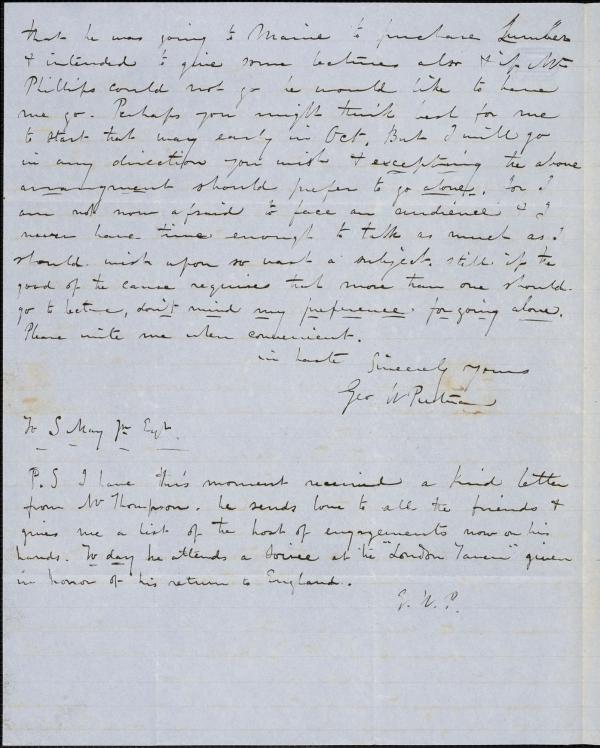 that he was going to Maine to purchase Lumber
& intended to give some lectures also & if Mr
Phillips could not go he would like to have
me go. Perhaps you might think best for me
to start that way early in Oct. But I will go
in any direction you wish & excepting the above
arrangment should prefer to go alone. for I
am not now afraid to face an audience & I
never have time enough to talk as much as I
should wish upon so vast a subject. Still if the
good of the cause requires that more than one should
go to lecture, don't mind my preference for going alone.
Please write me when convenient.
in haste Sincerely yours
Geo W Putnam
To S May Jr Esqr.
P.S I have this moment received a kind letter
from Mr Thompson. he sends love to all the friends &
gives me a list of the host of engagements now on his
hands. To day he attends a Soiree at the "London Tavern" given
in honor of his return to England.
G. W. P.